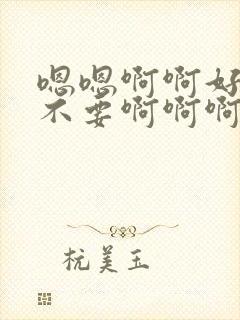 嗯嗯啊啊好
不要啊啊啊
杭美玉